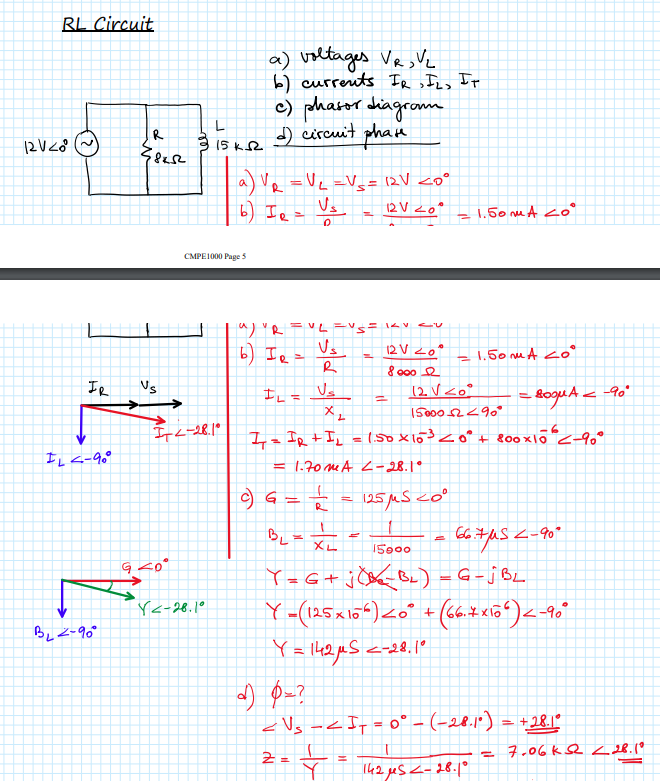 RL Circuit
a) voltages VR, VL
b) currents IR, IL, IT
c) phasor diagram
d) circuit phase
12V∠0°
R
8kΩ
L
15 kΩ
a) VR = VL = VS = 12V ∠0°
b) IR = VS = 12V ∠0° = 1.50 mA ∠0°
CMPE1000 Page 5
a) VR = VL = VS = 12V ∠0
b) IR = VS/R = 12V ∠0°/8000 Ω = 1.50 mA ∠0°
IR VS
IT ∠-28.1°
IL ∠-90°
IL = VS/XL = 12V ∠0°/15000 Ω ∠90° = 800μA ∠ -90°
IT = IR + IL = 1.50 × 10⁻³ ∠0° + 800×10⁻⁶ ∠-90°
= 1.70 mA ∠-28.1°
c) G = 1/R = 125 μS ∠0°
BL = 1/XL = 1/15000 = 66.7μS ∠-90°
G ∠0°
Y∠-28.1°
BL ∠-90°
Y = G + j(BC-BL) = G - jBL
Y = (125×10⁻⁶)∠0° + (66.7×10⁻⁶)∠-90°
Y = 142μS ∠-28.1°
d) ϕ=?
∠VS - ∠IT = 0° - (-28.1°) = +28.1°
Z = 1/Y = 1/142 μS ∠-28.1° = 7.06 kΩ ∠28.1°